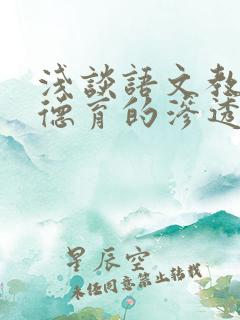 淺談語文教
德育的滲透
星辰空
未经同意禁止转载